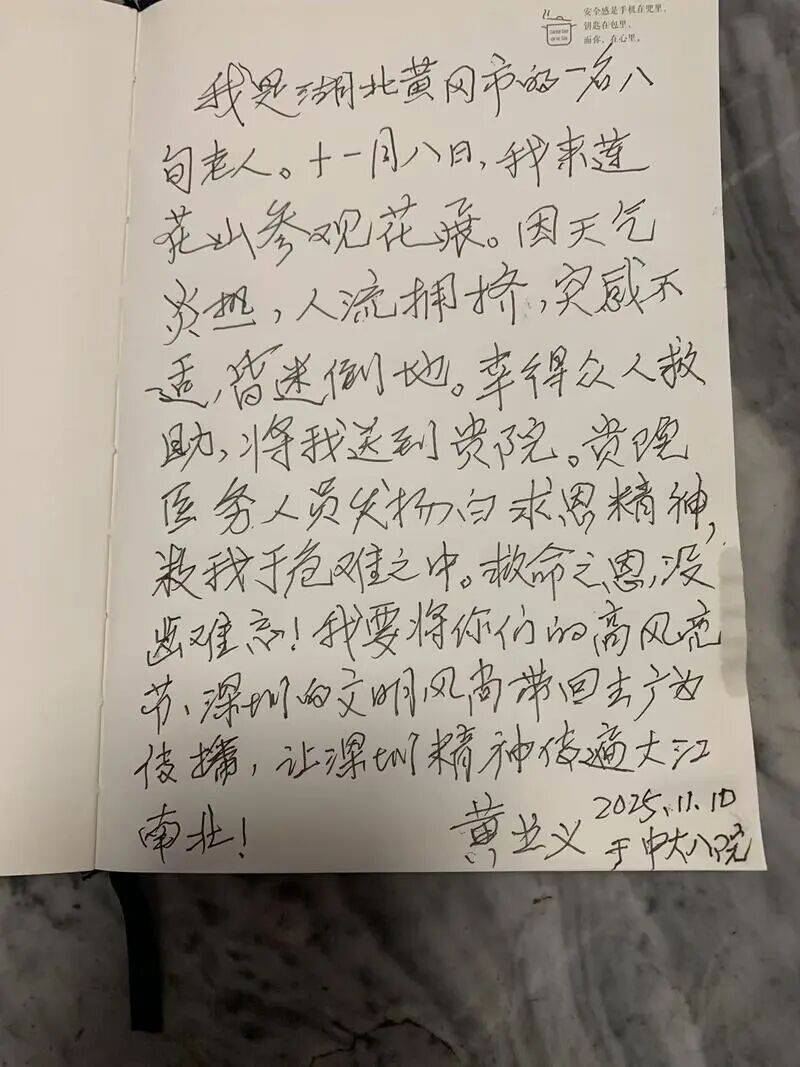 安全感是手机在兜里，
钥匙在包里，
而你，在心里。
我是湖北黄冈市的一名八
旬老人。十一月八日，我来莲
花山参观花展。因天气
炎热，人流拥挤，突感不
适，昏迷倒地。幸得众人救
助，将我送到贵院。贵院
医务人员发扬白求恩精神，
救我于危难之中。救命之恩，没
齿难忘！我要将你们的高风亮
节、深圳的文明风尚带回去广为
传播，让深圳精神传遍大江
南北！
黄立义 2025.11.10
于中大八院